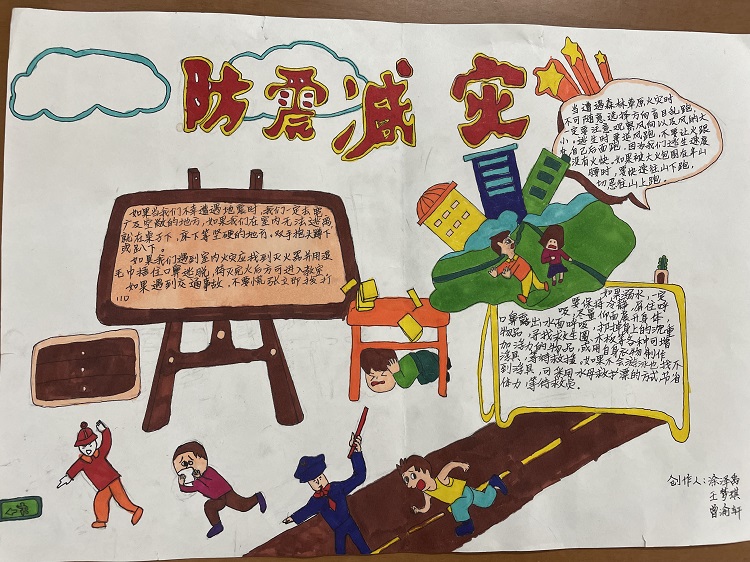 防震减灾
当遭遇森林草原火灾时
不可随意选择方向盲目乱跑,
一定要注意观察风向以及风的大
小,逃生时要逆风跑,不要让火跟
在自己后面跑,因为我们逃生速度
没有火快,如果被大火包围在半山
腰时,要快速往山下跑,
切忌往山上跑.
如果当我们不幸遭遇地震时,我们一定去宽
广及空敞的地方,如果我们在室内无法逃离
就在桌子下,床下等坚硬的地方,双手抱头蹲下
或趴下。
如果我们遇到室内火灾应找到灭火器并用湿
毛巾捂住口鼻逃脱,待灭完火后方可进入教室
如果遇到交通事故,不要慌张立即拨打
110
如果溺水,一定
要保持冷静,屏住呼
吸,尽量仰面展升身体,
口鼻露出水面呼吸,扔掉身上的沉重
物品,寻找救生圈,木板等各种可增
加浮力的物品,或用自身衣物制作
浮具,等待救援,如果不会游泳也找不
到浮具,可采用水母救护票的方式节省
体力,等待救援.
创作人:涂泽禹
王梦琪
曾渝轩